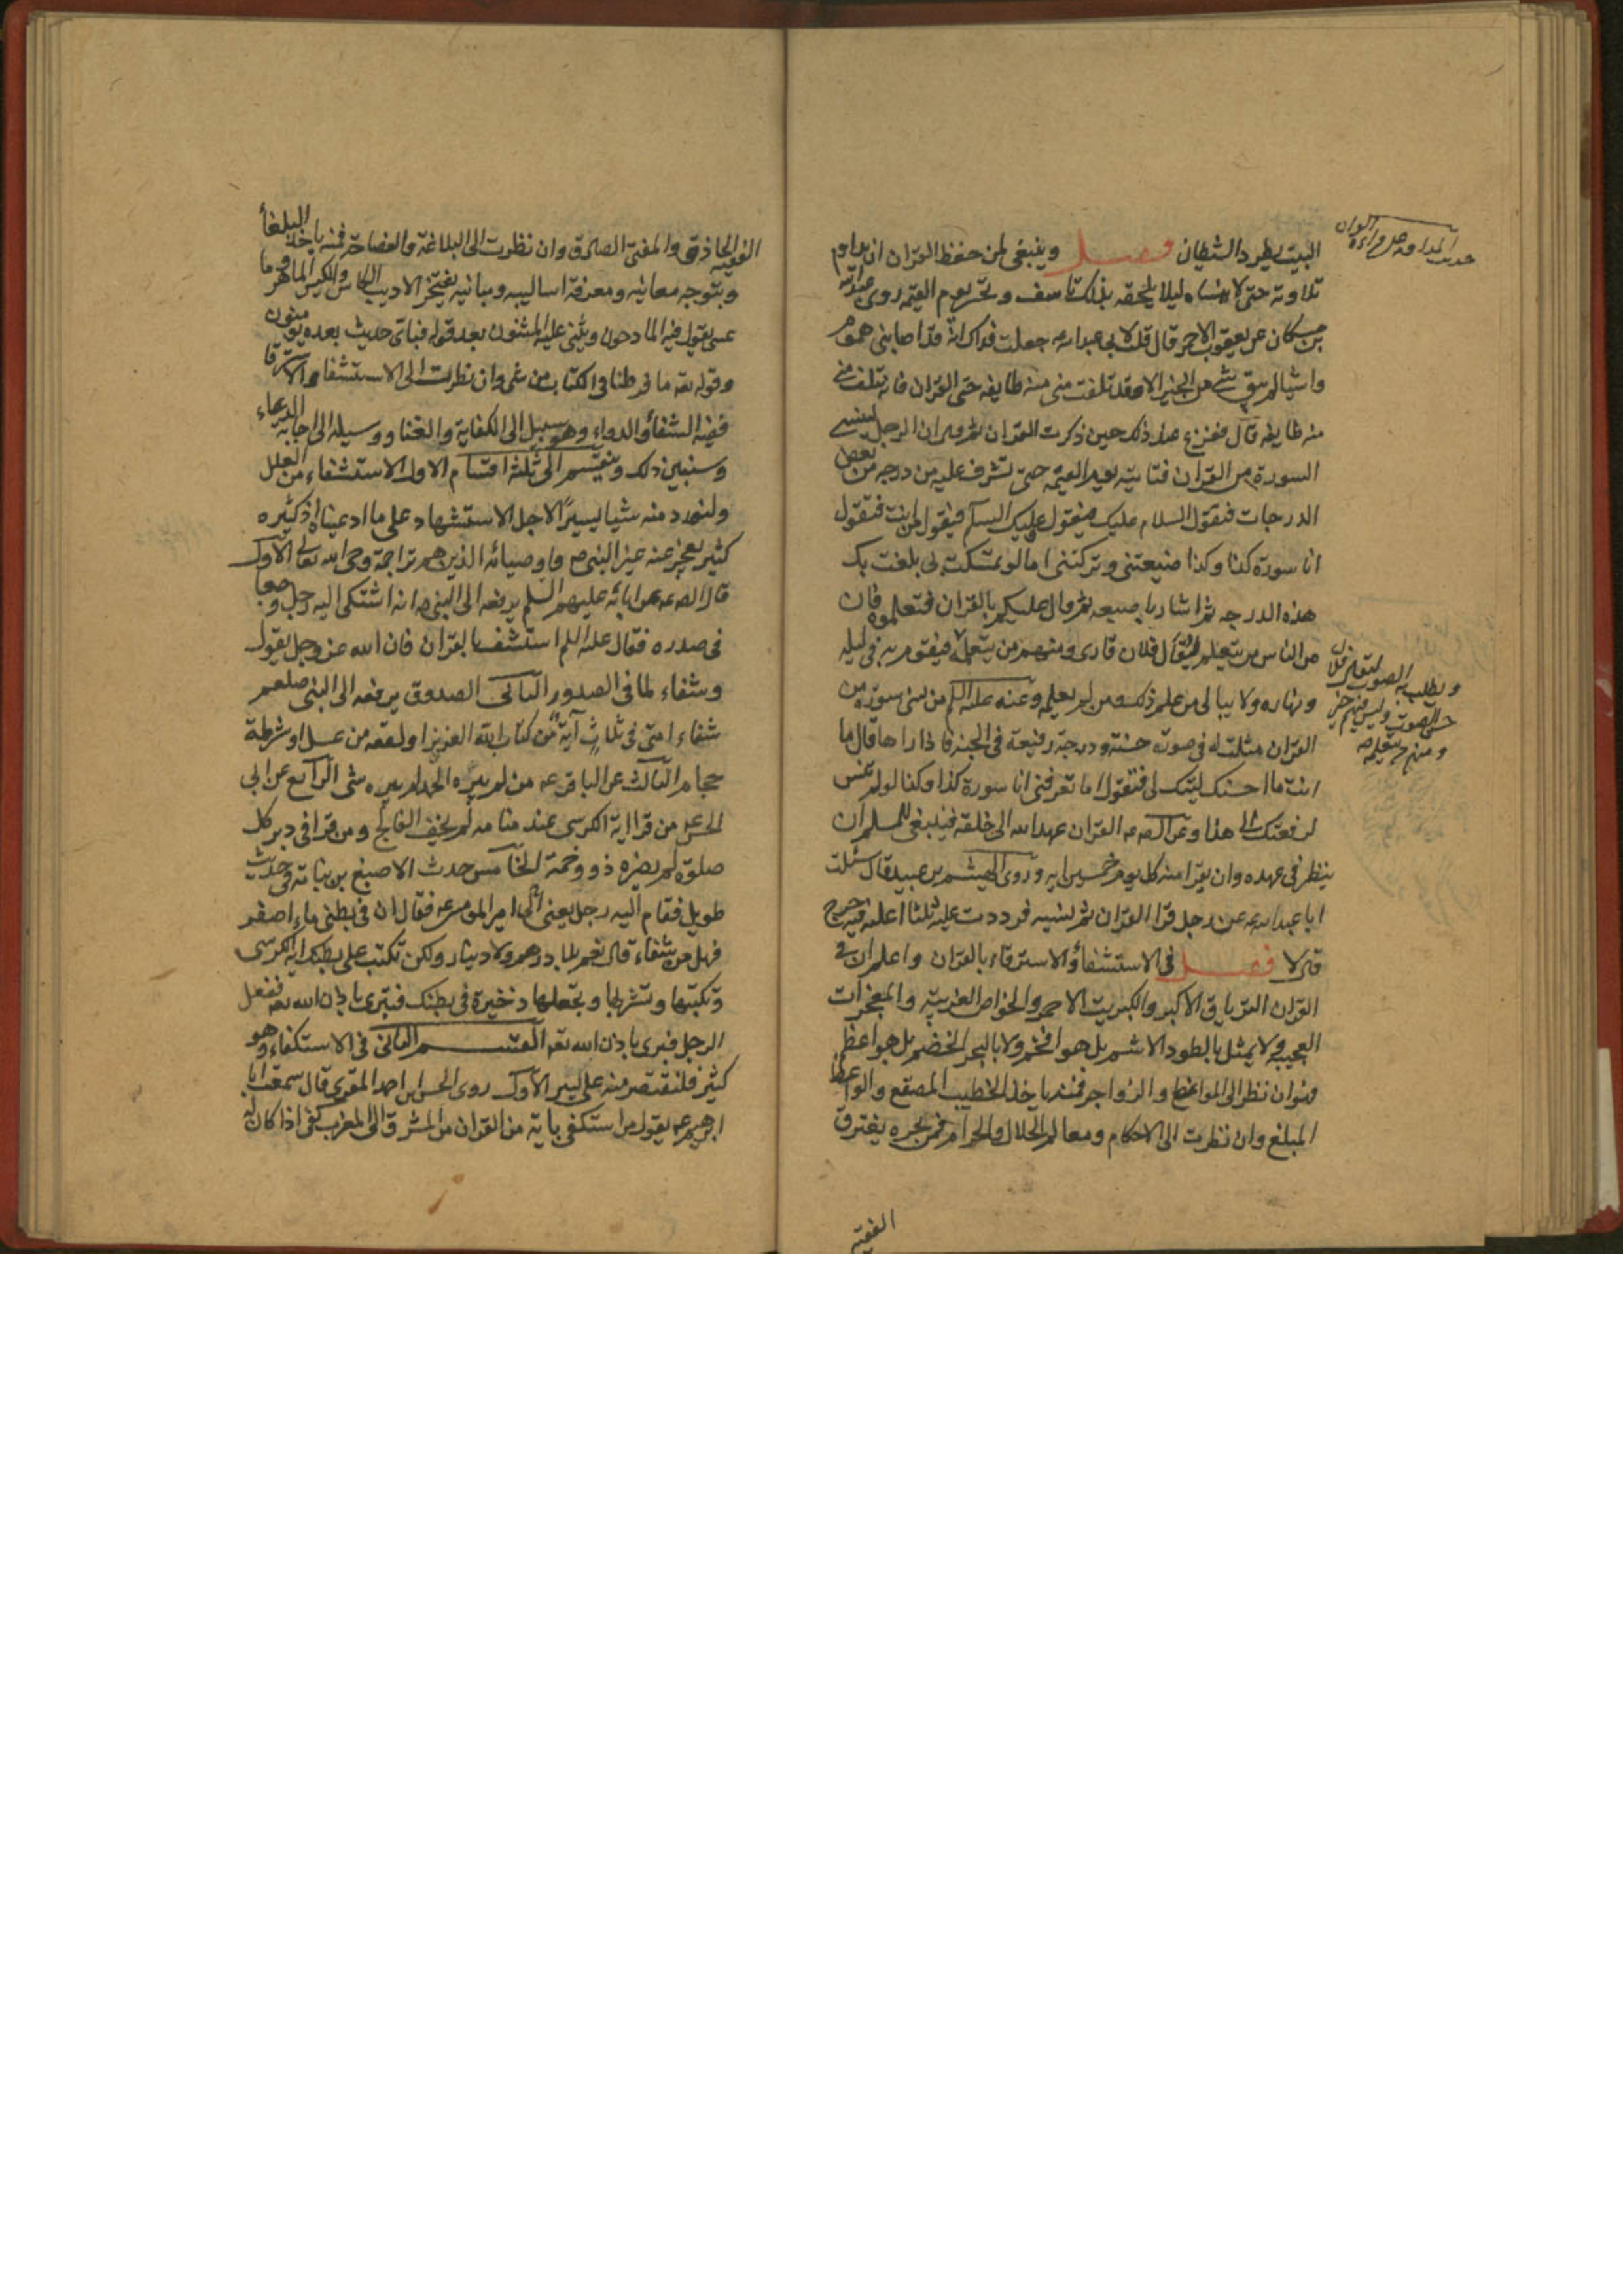 البيت يطرد الشيطان فصل وينبغي لمن حفظ القران ان يداوم
تلاوته حتى لا ينساه ليلا يلحقه بذلك تاسف وتحسر يوم القيمه روى عبدالله
بن مسكان عن يعقوب الاحمر قال قلت لابي عبدالله ع جعلت فداك انه قد اصابني هموم
واشيا لم يبق شي من الخير الا وقد تفلت مني منه طايفه حتى القران فانه تفلت مني
منه طايفه قال ففزع عند ذلك حين ذكرت القران ثم قال ان الرجل لينسى
السورة من القران فتاتيه يوم القيمه حتى تشرف عليه من درجه من بعض
الدرجات فتقول السلام عليك فيقول وعليك السلم فيقول من انت فتقول
انا سورة كذا وكذا ضيعتني وتركتني اما لو تمسكت بي بلغت بك
هذه الدرجه ثم اشار باصبعه ثم قال عليكم بالقران فتعلموه فان
من الناس من يتعلم ليقال فلان قارى ومنهم من يتعلمه فيقوم به في ليله
ونهاره ولا يبالي من علم ذلك ومن لم يعلمه وعنه عليه السلم من نسى سورة من
القران مثلت له في صورة حسنة ودرجة رفيعة في الجنة فاذا راها قال ما
انت ما احسنك ليتك لي فتقول اما تعرفني انا سورة كذا وكذا لو لم تنس
لرفعتك الى هذا وعن الصادق ع القران عهد الله الى خلقه فينبغي للمسلم ان
ينظر في عهده وان يقرا منه كل يوم خمسين ايه وروى الهيثم بن عبيد قال سئلت
ابا عبدالله ع عن رجل قرا القران ثم نسيه فرددت عليه ثلثا اعليه فيه حرج
قال لا فصل في الاستشفاء والاسترقاء بالقران واعلم ان في
القران الترياق الاكبر والكبريت الاحمر والخواص الغريبة والمعجزات
العجيبه ولا يمثل بالطود الاشم بل هو افخم ولا بالبحر الخضم بل هو اعظم
وان نظر الى المواعظ والزواجر فمنه ياخذ الخطيب المصقع والواعظ
المبلغ وان نظرت الى الاحكام ومعالم الحلال والحرام فمن بحره يغترف
الفقيه
ويطلب به الصوت ليقال فلان
حسن الصوت وليس فيهم خير
ومنهم من يتعلمه
الفقيه الحاذق والمفتي الصادق وان نظرت الى البلاغة والفصاحة فمنه ياخذ البلغا
وبتوجه معانيه ومعرفة اساليبه ومبانيه يفتخر الاديب الكامل والكيس الماهر وما
عسى يقول فيه المادحون ويثني عليه المثنون بعد قوله فباي حديث بعده يؤمنون
وقوله تعه ما فرطنا في الكتاب من شي وان نظرت الى الاستشفا والاسترقا
ففيه الشفاء والدواء وهو سبيل الى الكفاية والغنا ووسيله الى اجابة الدعاء
وسنبين ذلك وينقسم الى ثلثه اقسام الاول الاستشفاء من العلل
ولنورد منه شيا يسيرا لاجل الاستشهاد على ما ادعيناه اذ كثيره
كثير يعجز عنه غير النبي ص واوصيائه الذين هم تراجمة وحي الله تعالى الاول
قال الصادق ع عن ابائه عليهم السلم يرفعه الى النبي ص انه اشتكى اليه رجل وجعا
في صدره فقال عليه السلم استشف بالقران فان الله عز وجل يقول
وشفاء لما في الصدور الثاني الصدوق يرفعه الى النبي صلعم
شفاء امتي في ثلاث آية من كتاب الله العزيز او لعقه من عسل او شرطة
حجام الثالث عن الباقر ع من لم يبره الحمد لم يبره شي الرابع عن ابي
الحسن ع من قرا اية الكرسى عند منامه لم يخف الفالج ومن قرا في دبر كل
صلوة لم يضره ذو حمة الخامس حدث الاصبغ بن نباته في حديث
طويل فقام اليه رجل يعني الى امير المومنين ع فقال ان في بطني ماء اصفر
فهل من شفاء قال نعم بلا درهم ولا دينار ولكن تكتب على بطنك اية الكرسى
وتكتبها وتشربها وتجعلها ذخيرة في بطنك فتبرى باذن الله تعه ففعل
الرجل فبرى باذن الله تعه القسم الثاني في الاستكفاء وهو
كثير فلنقتصر منه على يسير الاول روى الحسن بن احمد المقرى قال سمعت ابا
ابرهيم ع يقول من استكفى باية من القران من المشرق الى المغرب كفى اذا كان له